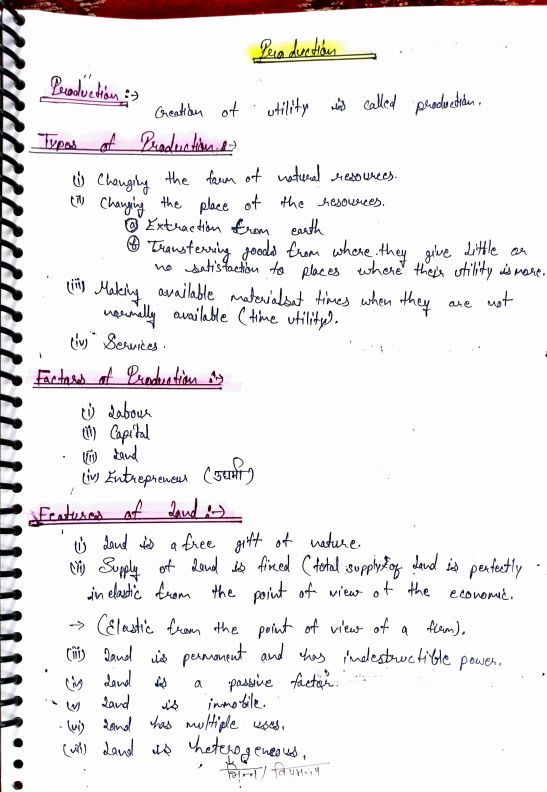 Production
Production :-
Creation of utility is called production.
Types of Production :-
(i) Changing the form of natural resources.
(ii) Changing the place of the resources.
(a) Extraction from earth
(b) Transferring goods from where they give little or
no satisfaction to places where their utility is more.
(iii) Making available materials at times when they are not
normally available (time utility).
(iv) Services.
Factors of Production :-
(i) Labour
(ii) Capital
(iii) Land
(iv) Entrepreneur (उद्यमी)
Features of Land :-
(i) Land is a free gift of nature.
(ii) Supply of Land is fixed (total supply of Land is perfectly
inelastic from the point of view of the economic.
→ (Elastic from the point of view of a firm).
(iii) Land is permanent and has indestructible power.
(iv) Land is a passive factor.
(v) Land is immobile.
(vi) Land has multiple uses.
(vii) Land is heterogeneous.
भिन्न /